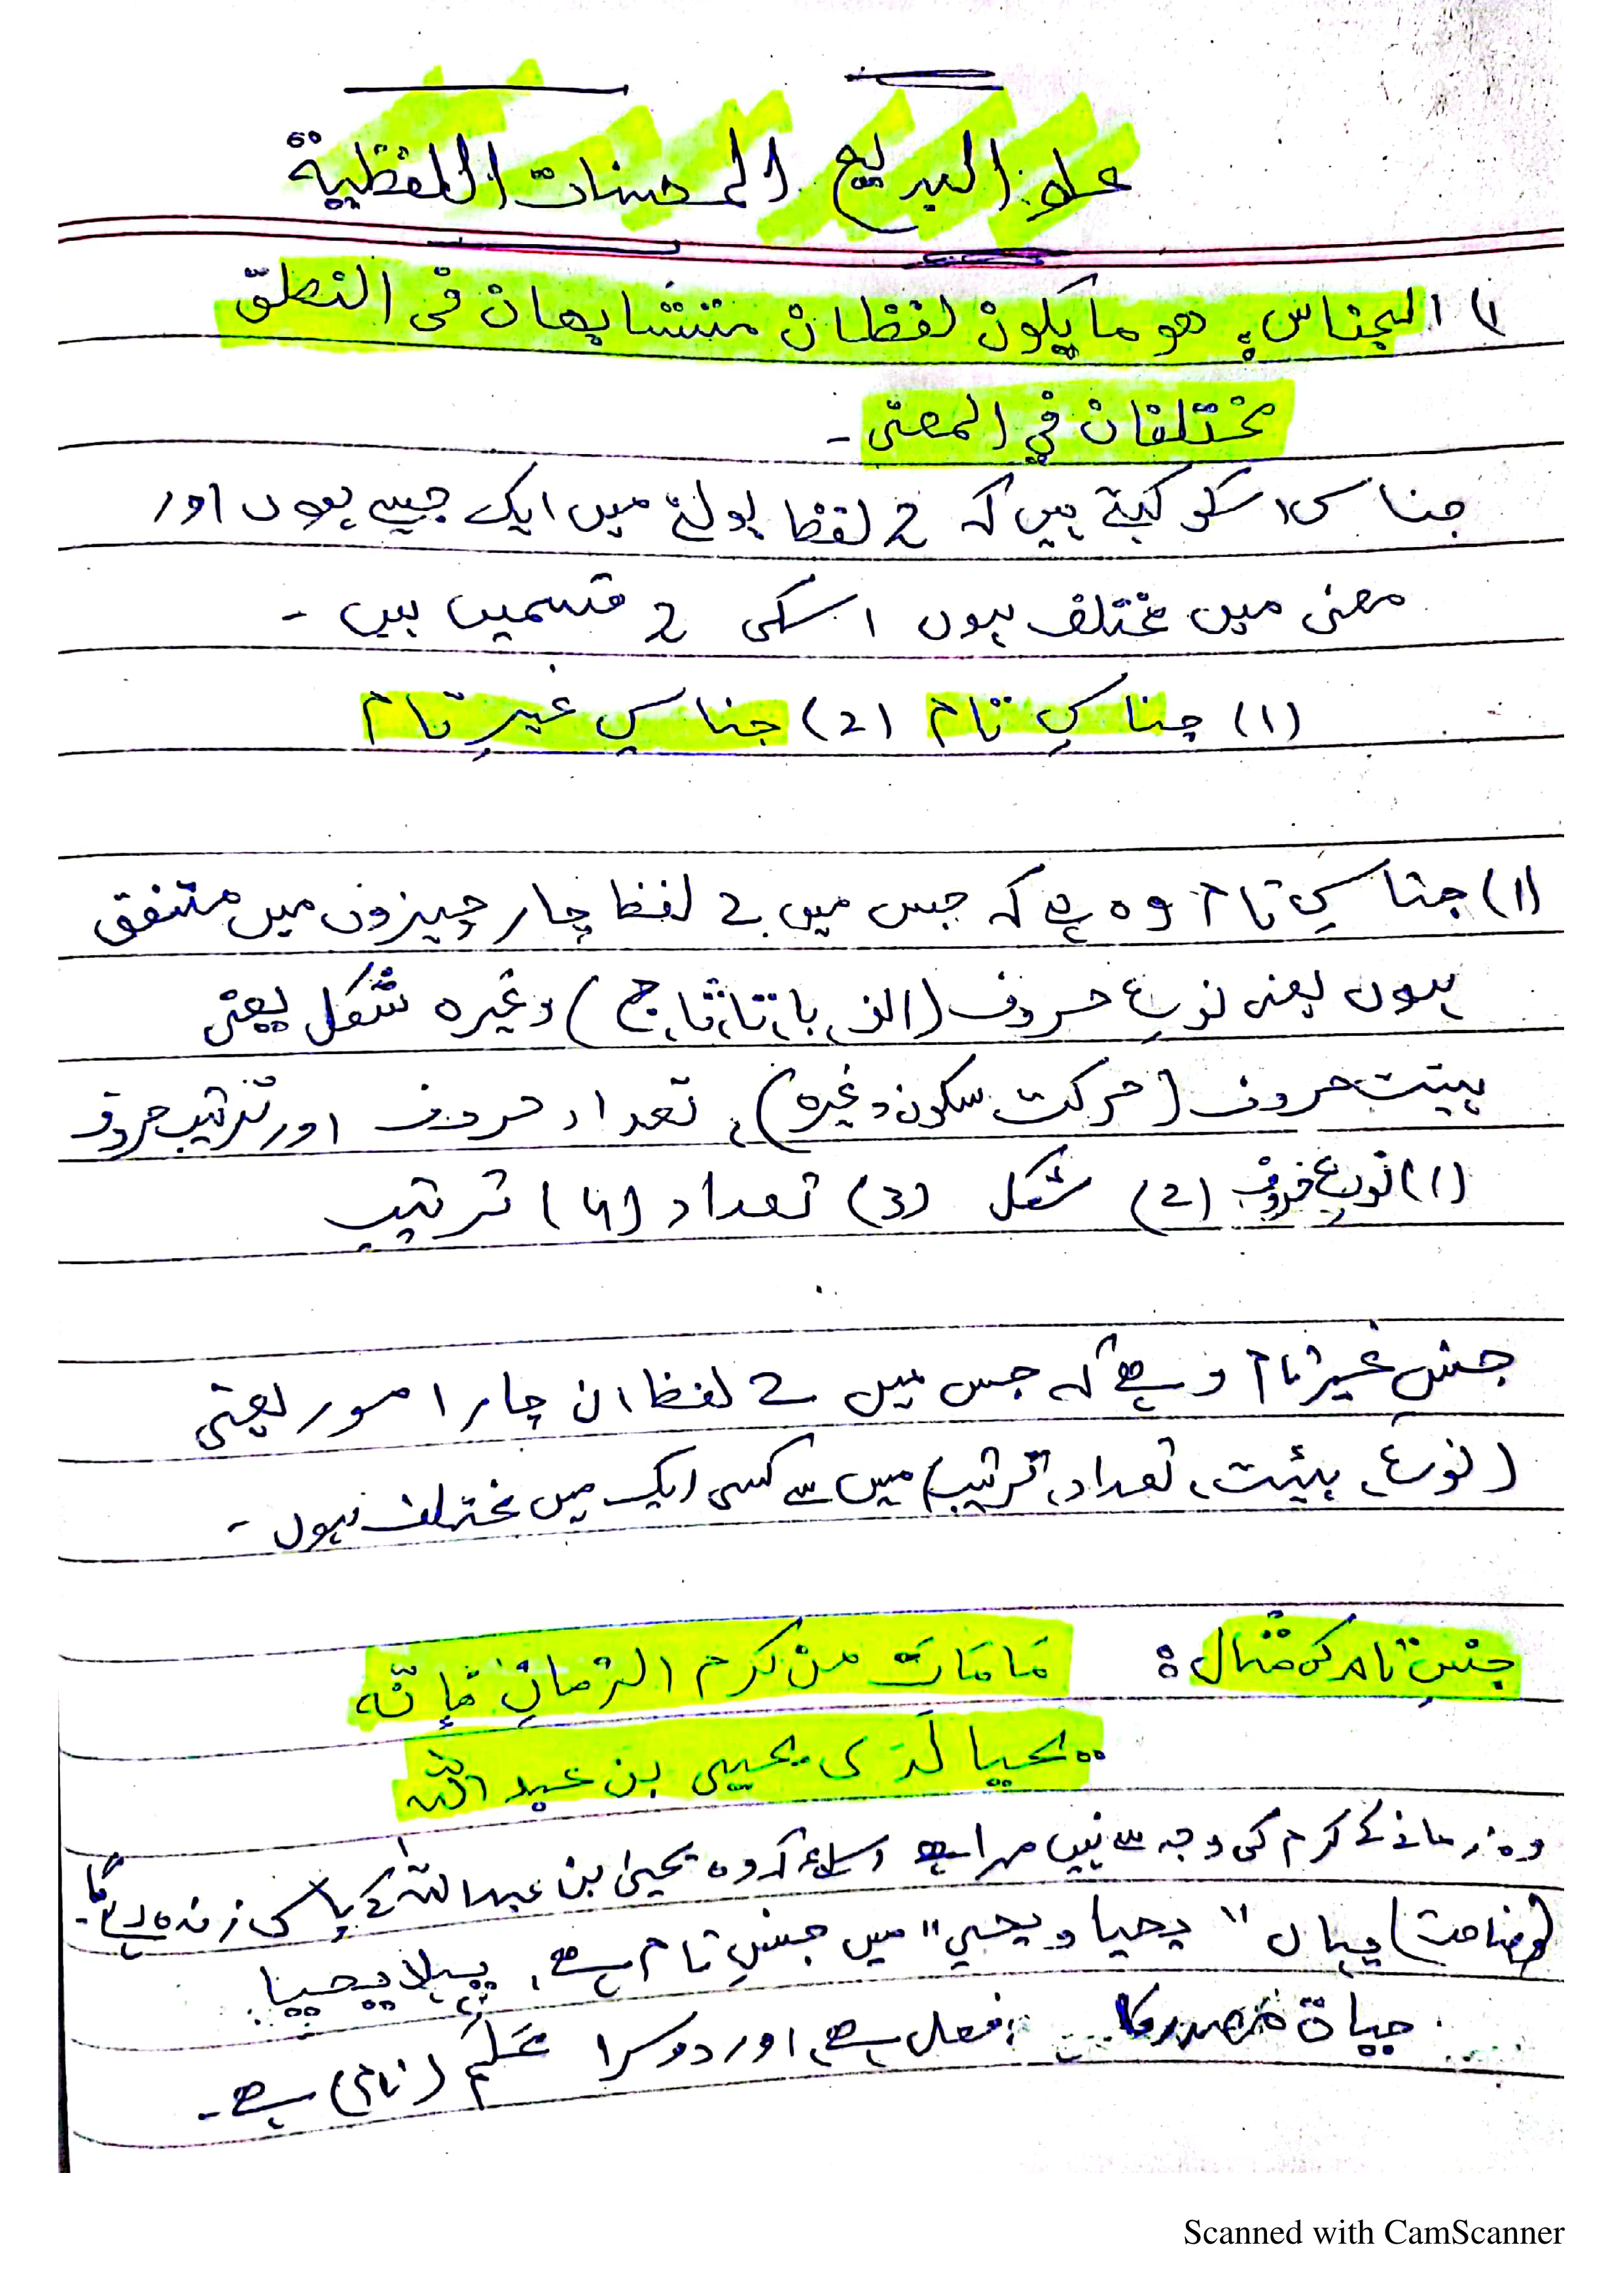 علم البدیع المحسنات اللفظیۃ
۱) الجناس؛ ھو ما یکون لفظان متشابھان فی النطق
مختلفان فی المعنی -
جناس اسکو کہتے ہیں کہ 2 لفظ بولنے میں ایک جیسے ہوں اور
معنی میں مختلف ہوں اسکی 2 قسمیں ہیں -
(1) جناسِ تام (2) جناسِ غیرِ تام
(1) جناسِ تام وہ ہے کہ جس میں 2 لفظ چار چیزوں میں متفق
ہوں یعنی نوعِ حروف (الف، با، تا، ثا، ج) وغیرہ شکل یعنی
ہیئت حروف (حرکت سکون وغیرہ)، تعداد حروف اور ترتیب حروف
(1) نوعِ حروف (2) شکل (3) تعداد (4) ترتیب
جنسِ غیر تام وہ ہے کہ جس میں 2 لفظ ان چار امور یعنی
(نوع، ہیئت، تعداد، ترتیب) میں سے کسی ایک میں مختلف ہوں -
جنسِ تام کی مثال : مَا مَاتَ من کرم الزمانِ فإنّہ
یحیا لَدَی یحیی بن عبد اللہ
وہ زمانے کے کرم کی وجہ سے نہیں مرا ہے اسلئے کہ وہ یحییٰ بن عبداللہ کے پاس زندہ رہے گا -
(وضاحت) یہاں "یحیا و یحیی" میں جنسِ تام ہے، پہلا یحیا
حیاۃ مصدر کا فعل ہے، اور دوسرا عَلَم (نام) ہے -
Scanned with CamScanner